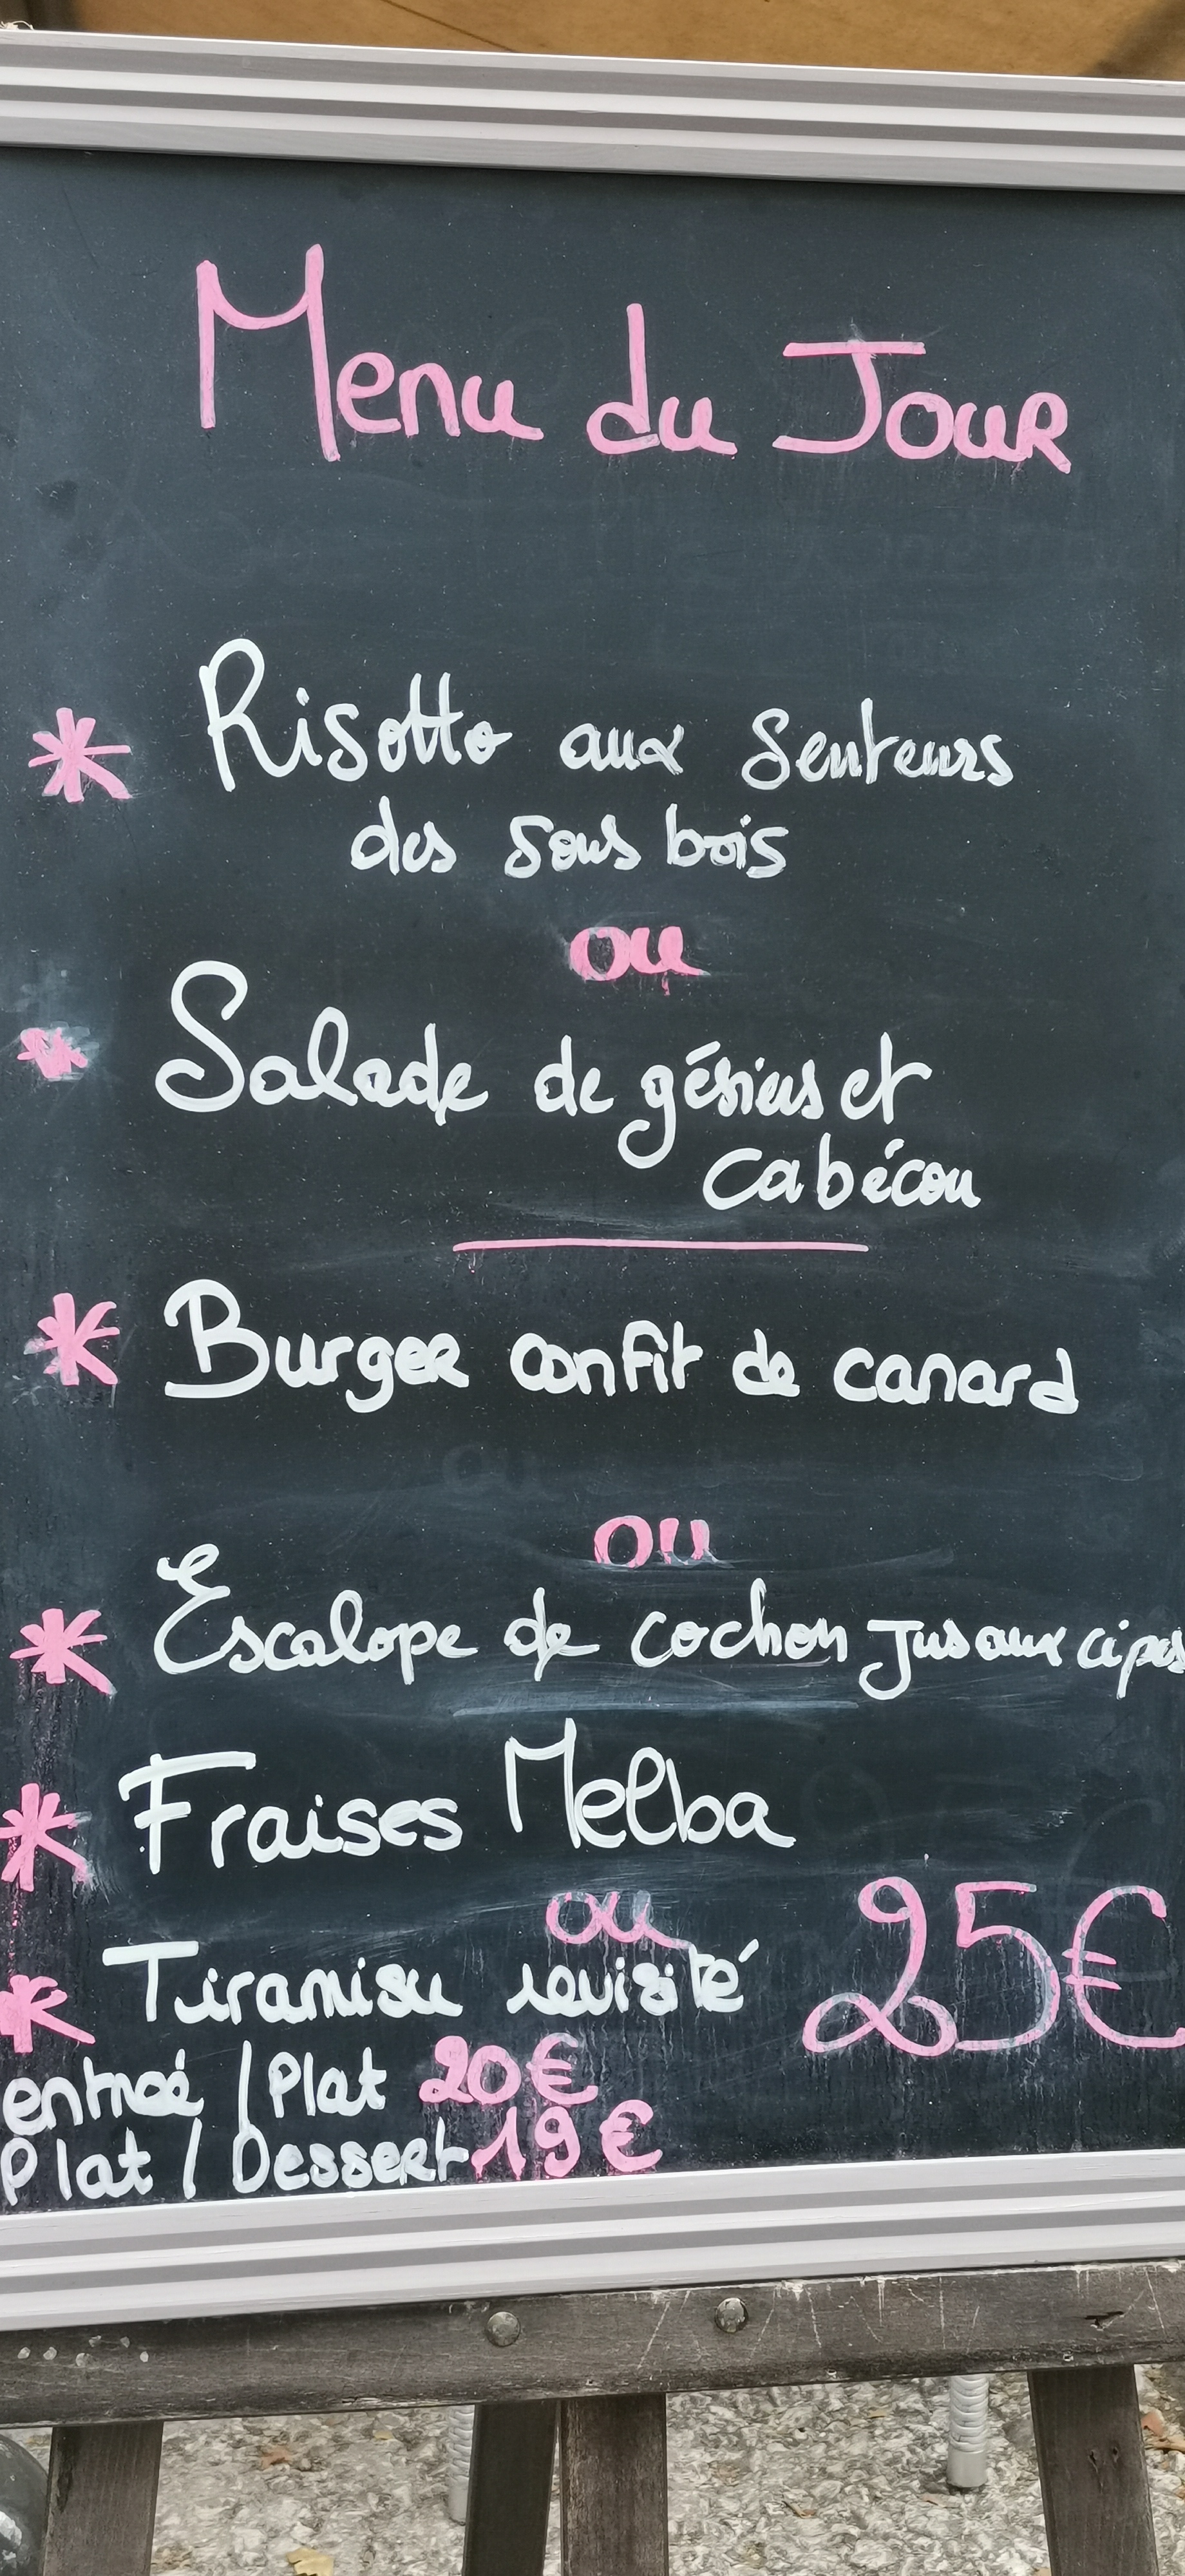 Menu du Jour
* Risotto aux senteurs
des sous bois
ou
* Salade de gésiers et
cabécou
* Burger confit de canard
ou
* Escalope de cochon Jus aux cèpes
* Fraises Melba
ou
* Tiramisu revisité
25€
entrée / Plat 20€
Plat / Dessert 19€